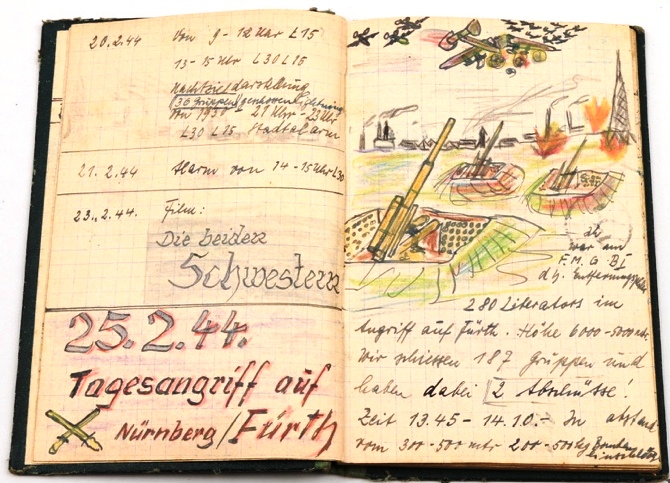 20.2.44 Von 9 - 12 Uhr L15
13-15 Uhr L30 L15
Nachtzieldarstellung
(36 Gruppen)
von 1930 - 21 Uhr - 23 Uhr
L30 L15. Stadtalarm
21.2.44 Alarm von 14-15 Uhr L30
23.2.44. Film:
Die beiden
Schwestern
25.2.44.
Tagesangriff auf
Nürnberg/Fürth
ich
war am
F.M.G. BI
d.h.
280 Liberators im
Angriff auf Fürth. Höhe 6000-5000 mtr
wir schiessen 187 Gruppen und
haben dabei 2 Abschüsse!
Zeit 13.45 - 14.10. - In abstand
vom 300-500 mtr 200-500kg Bomben